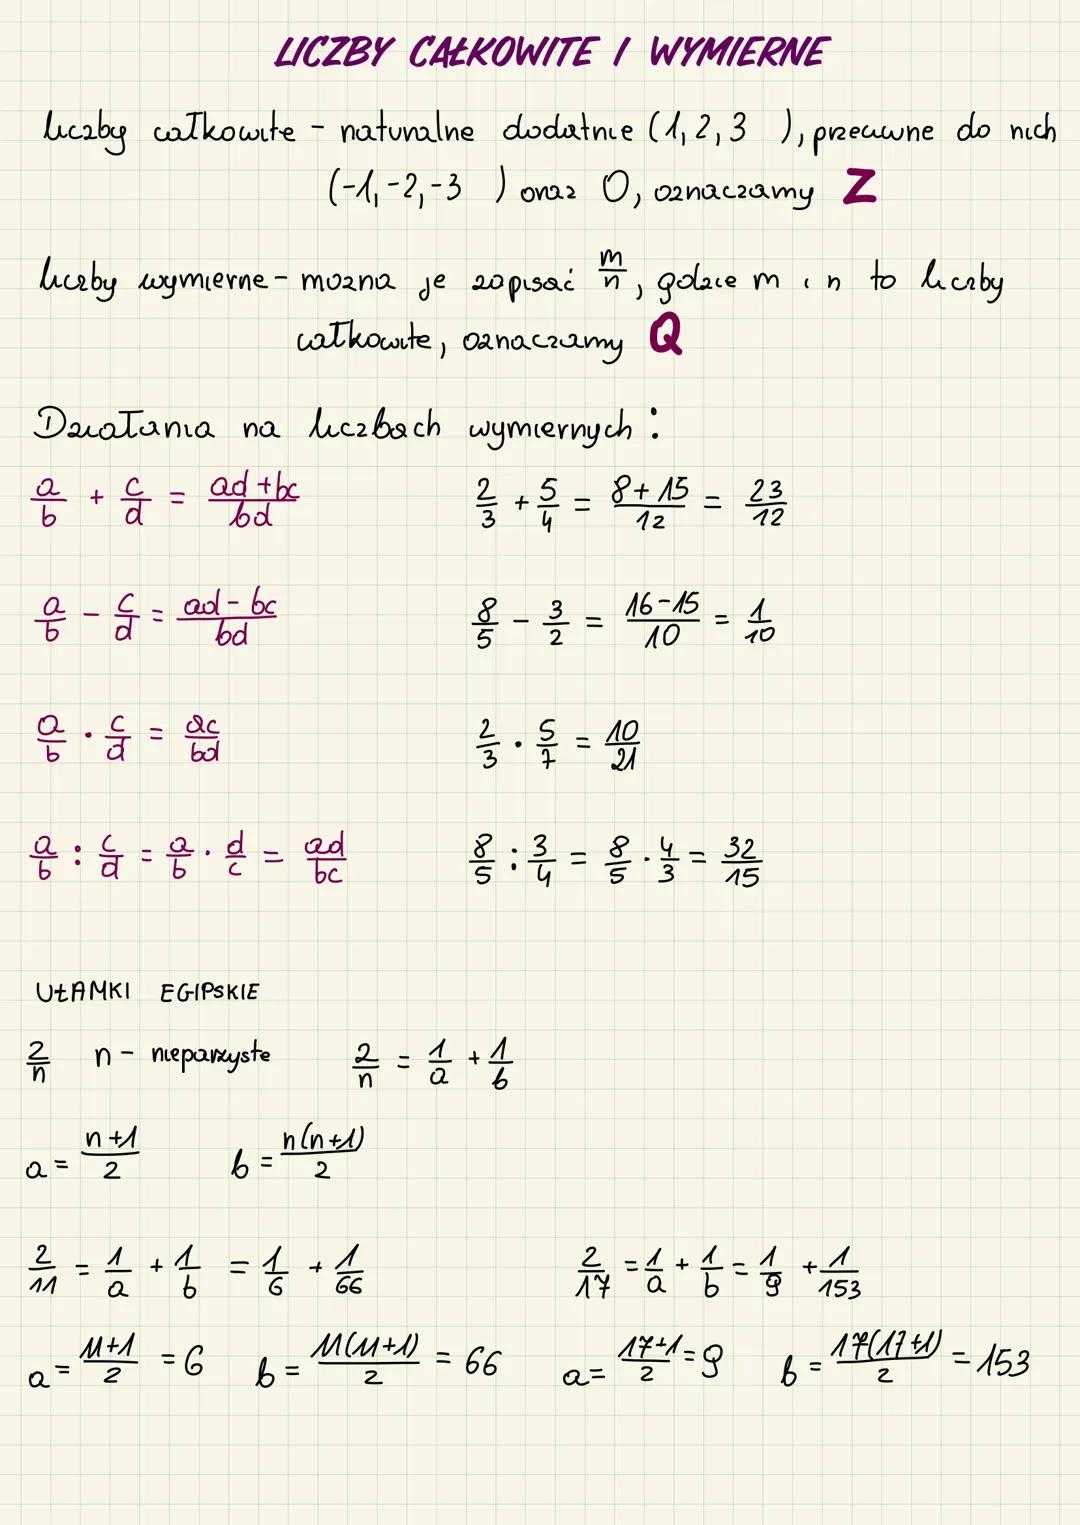 LICZBY CAŁKOWITE I WYMIERNE
liczby całkowite - naturalne dodatnie (1, 2, 3 ), przeciwne do nich
(-1, -2, -3 ) oraz 0, oznaczamy Z
liczby wymierne - można je zapisać m/n, gdzie m i n to liczby
całkowite, oznaczamy Q
Działania na liczbach wymiernych :
a/b + c/d = ad+bc/bd 2/3 + 5/4 = 8+15/12 = 23/12
a/b - c/d = ad-bc/bd 8/5 - 3/2 = 16-15/10 = 1/10
a/b · c/d = ac/bd 2/3 · 5/7 = 10/21
a/b : c/d = a/b · d/c = ad/bc 8/5 : 3/4 = 8/5 · 4/3 = 32/15
UŁAMKI EGIPSKIE
2/n n - nieparzyste 2/n = 1/a + 1/b
a = n+1/2 b = n(n+1)/2
2/11 = 1/a + 1/b = 1/6 + 1/66 2/17 = 1/a + 1/b = 1/9 + 1/153
a = 11+1/2 = 6 b = 11(11+1)/2 = 66 a = 17+1/2 = 9 b = 17(17+1)/2 = 153